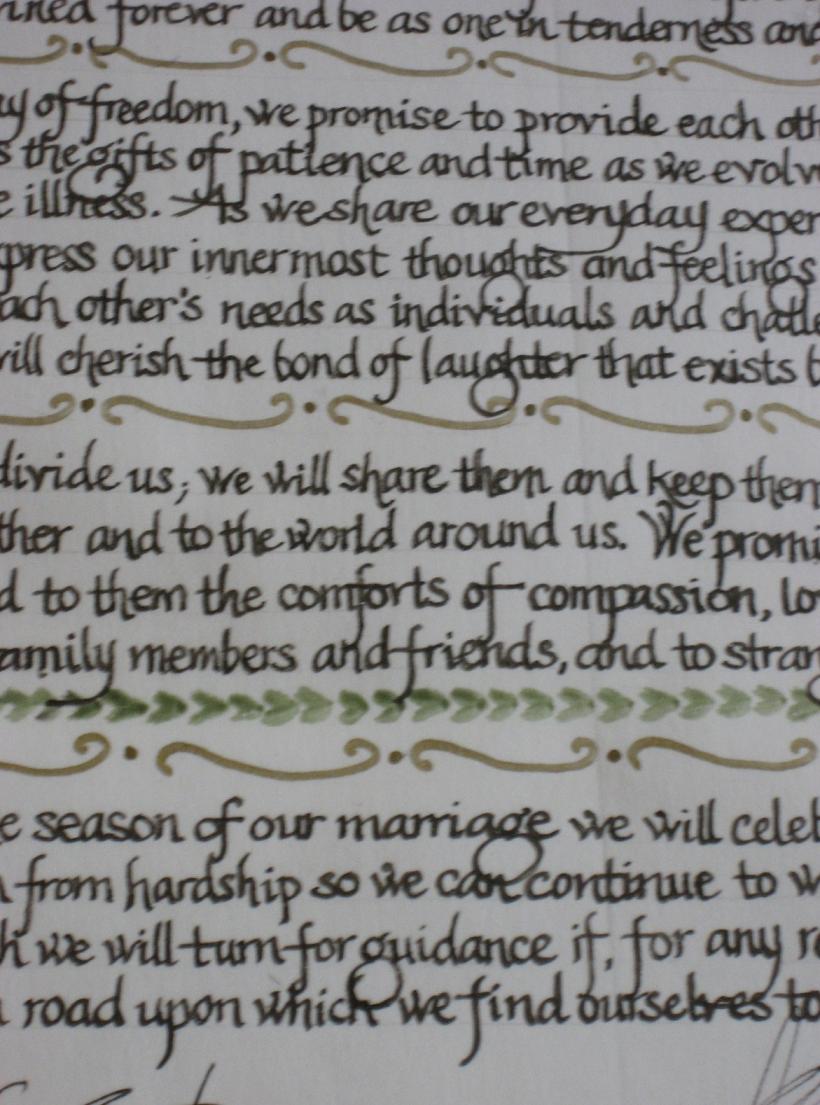 forever and be as one in tenderness and
of freedom, we promise to provide each
the gifts of patience and time as we evolv
illness. As we share our everyday exper
press our innermost thoughts and feelings
ach other's needs as individuals and
will cherish the bond of laughter that exists
divide us; we will share them and keep them
ther and to the world around us. We promi
d to them the comforts of compassion, lo
amily members and friends, and to stran
e season of our marriage we will celeb
from hardship so we can continue to w
h we will turn for guidance if, for any re
road upon which we find ourselves to